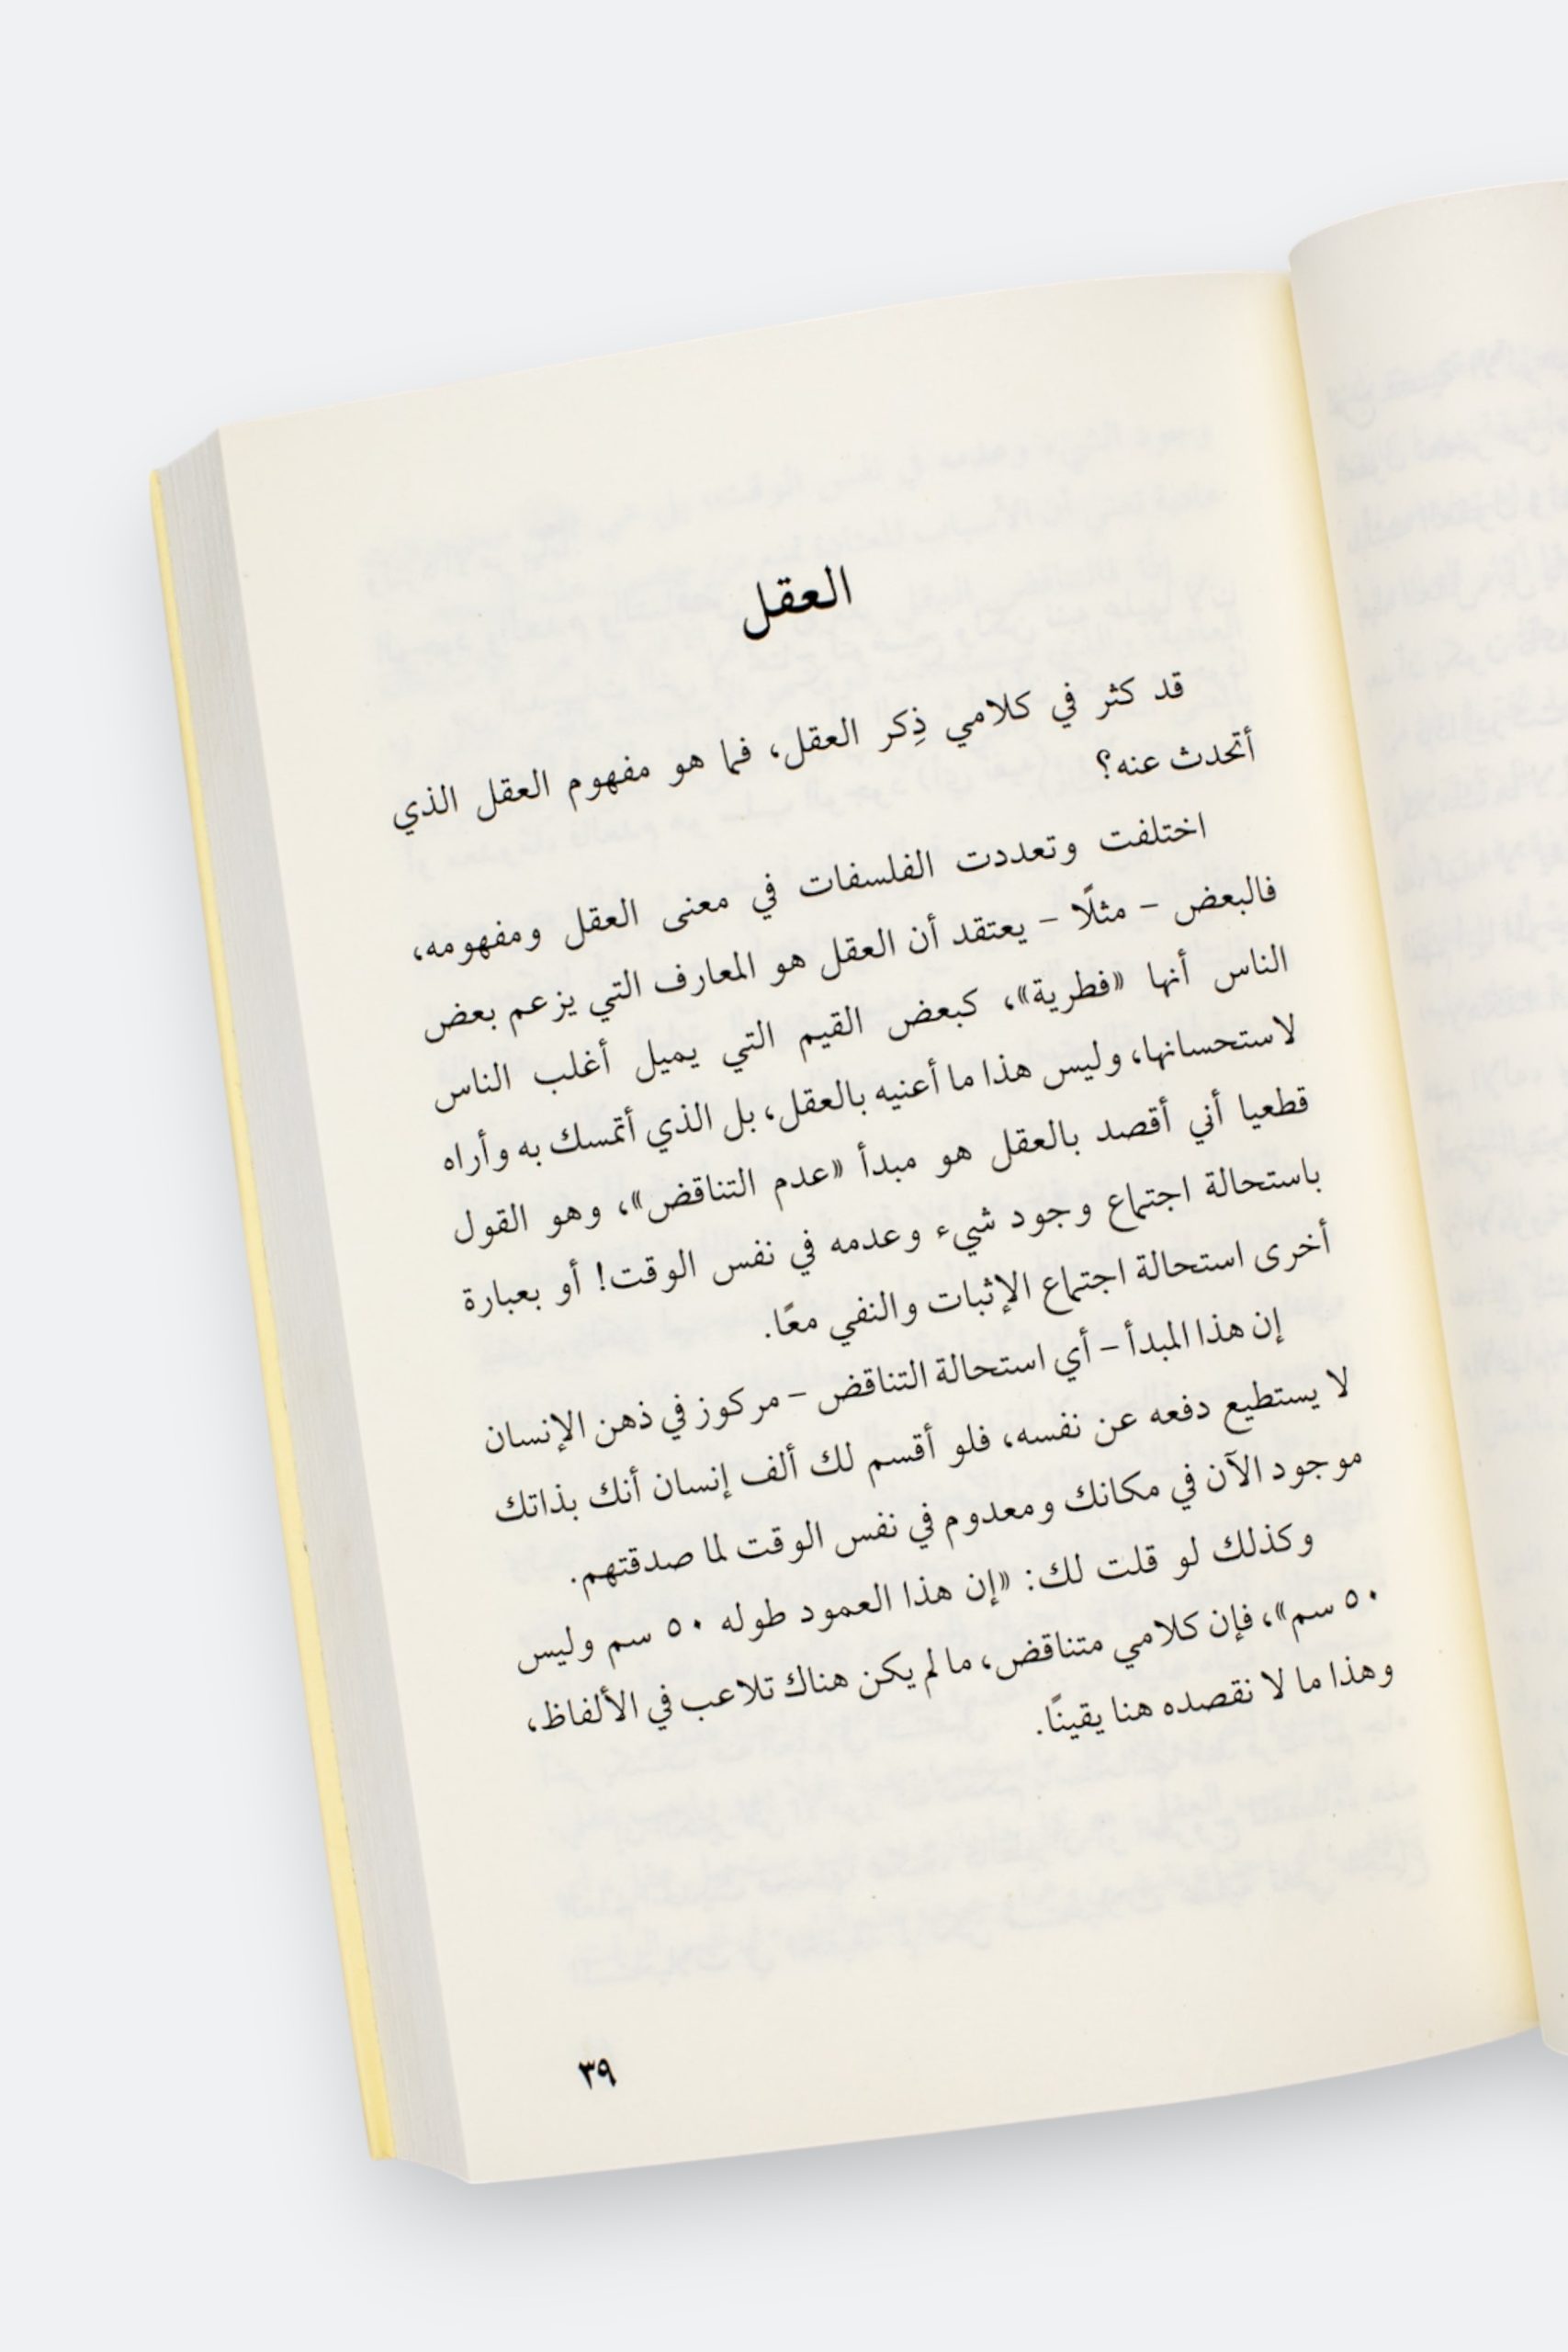 العقل
قد كثر في كلامي ذِكر العقل، فما هو مفهوم العقل الذي
أتحدث عنه؟
اختلفت وتعددت الفلسفات في معنى العقل ومفهومه،
فالبعض – مثلًا – يعتقد أن العقل هو المعارف التي يزعم بعض
الناس أنها «فطرية»، كبعض القيم التي يميل أغلب الناس
لاستحسانها، وليس هذا ما أعنيه بالعقل، بل الذي أتمسك به وأراه
قطعيا أني أقصد بالعقل هو مبدأ «عدم التناقض»، وهو القول
باستحالة اجتماع وجود شيء وعدمه في نفس الوقت! أو بعبارة
أخرى استحالة اجتماع الإثبات والنفي معًا.
إن هذا المبدأ – أي استحالة التناقض – مركوز في ذهن الإنسان
لا يستطيع دفعه عن نفسه، فلو أقسم لك ألف إنسان أنك بذاتك
موجود الآن في مكانك ومعدوم في نفس الوقت لما صدقتهم.
وكذلك لو قلت لك: «إن هذا العمود طوله ٥٠ سم وليس
٥٠ سم»، فإن كلامي متناقض، ما لم يكن هناك تلاعب في الألفاظ،
وهذا ما لا نقصده هنا يقينًا.
٣٩